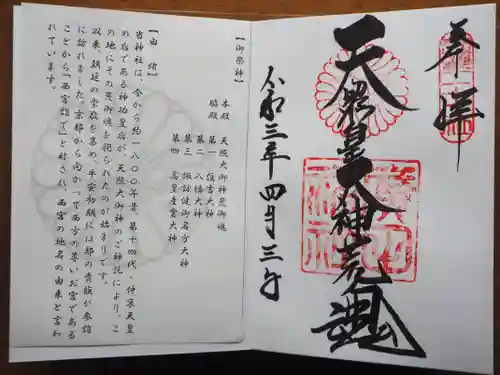 奉拝
天照皇大神荒魂
令和三年四月三日
【御祭神】
本殿 天照大御神荒御魂
脇殿 第一 住吉大神
第二 八幡大神
第三 諏訪建御名方大神
第四 高皇産霊大神
【由緒】
当神社は、今から約一八〇〇年昔、第十四代・仲哀天皇
の后である神功皇后が、天照大御神のご神託により、こ
の地にその荒御魂を祀られたのが始まりです。
以来、朝廷の崇敬を集め、平安初期には都の貴族が参詣
に訪れました。京都から向かって西方の尊いお宮である
ことから「西宮詣で」と称され、西宮の地名の由来と言わ
れています。